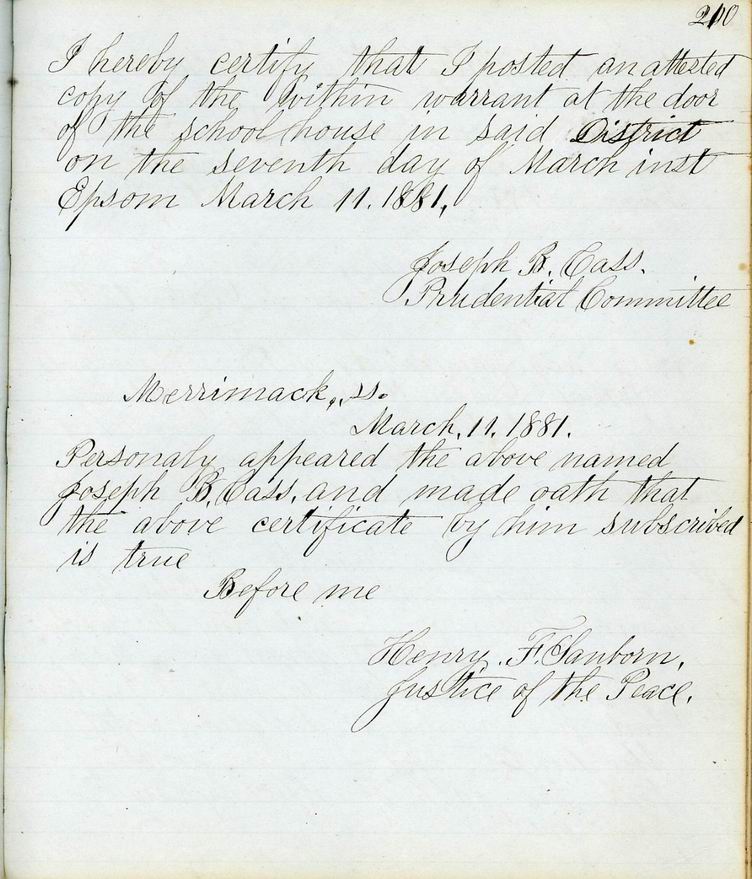 210
I hereby certify that I posted an attested
copy of the within warrant at the door
of the school house in said District
on the seventh day of March inst
Epsom March 11. 1881,
Joseph B. Cass.
Prudential Committee
Merrimack,, ss.
March, 11, 1881.
Personaly appeared the above named
Joseph B. Cass, and made oath that
the above certificate by him subscribed
is true
Before me
Henry. F. Sanborn,
Justice of the Peace.